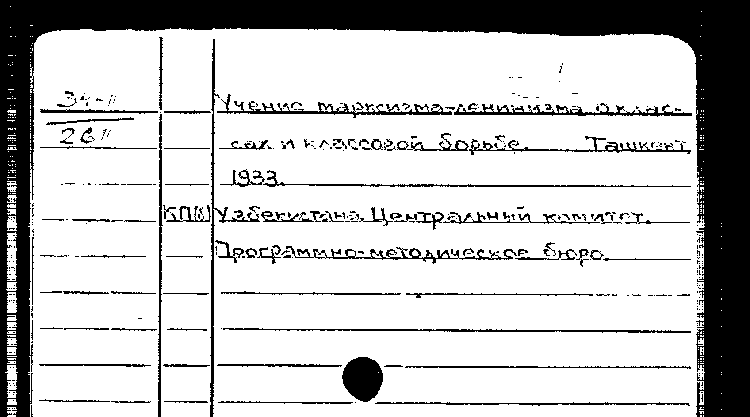 34-11
Учение марксизма-ленинизма о клас-
26 11
сах и классовой борьбе. Ташкент,
1933.
КП(б) Узбекистана. Центральный комитет.
Программно-методическое бюро.